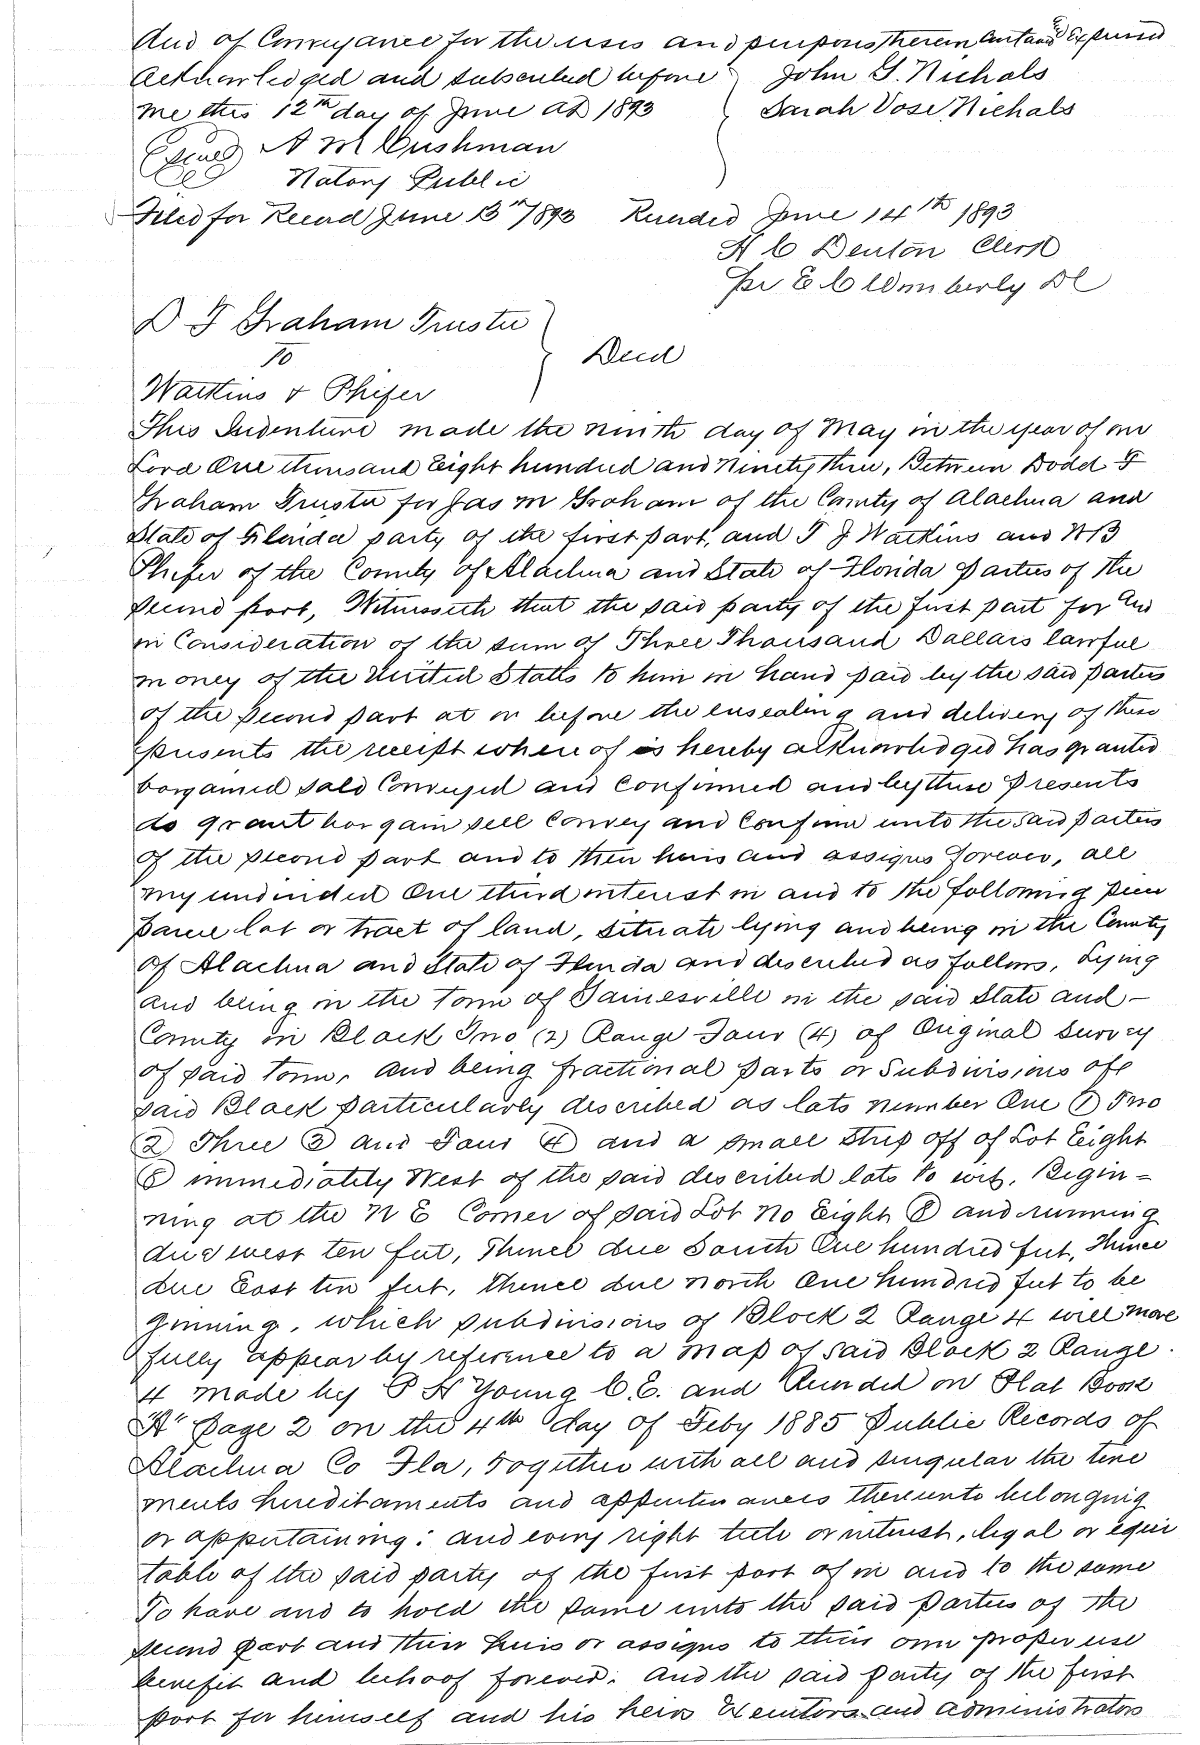 And of Conveyance for the uses and purposes therein Contand & Expressed
Acknowledged and subscribed before John G. Nichals
me this 12th day of June AD 1893 Sarah Vose Nichals
(Seal) A M Cushman
Notary Public
Filed for Record June 13th 1893 Recorded June 14th 1893
H C Denton Clerk
Pr E C Wimberly DC
D F Graham Trustee
To Deed
Watkins & Phifer
This Indenture made the ninth day of May in the year of our
Lord One thousand Eight hundred and Ninety three, Between Dodd F
Graham Trustee for Jas M Graham of the County of Alachua and
State of Florida party of the first part, and T J Watkins and WB
Phifer of the County of Alachua and State of Florida Parties of the
second part, Witnesseth that the said party of the first part for and
in Consideration of the sum of Three Thousand Dollars lawful
money of the United States to him in hand paid by the said parties
of the second part at or before the ensealing and delivery of these
presents the receipt where of is hereby acknowledged has granted
bargained sold Conveyed and Confirmed and by these Presents
do grant bargain sell Convey and Confirm unto the said parties
of the second part and to their heirs and assigns forever, all
my undivided One third interest in and to the following piece
parcel lot or tract of land, situate lying and being in the County
of Alachua and State of Florida and described as follows, Lying
and being in the Town of Gainesville in the said State and -
County in Block Two (2) Range Four (4) of Original Survey
of said Town, and being fractional parts or Subdivisions of
said Block particularly described as lots number One (1) Two
(2) Three (3) and Four (4) and a small strip off of Lot Eight
(8) immediately West of the said described lots to wit, Begin=
ning at the N E Corner of said Lot No Eight (8) and running
due west ten feet, Thence due South One hundred feet, Thence
due East ten feet, thence due north One hundred feet to be
ginning, which subdivisions of Block 2 Range 4 will more
fully appear by reference to a map of said Block 2 Range
4 made by P H Young C.E. and Recorded on Plat Book
"A" Page 2 on the 4th day of Feby 1885 Public Records of
Alachua Co Fla, Together with all and singular the tene
ments hereditaments and appurtenances thereunto belonging
or appertaining: and every right title or interest, legal or equi
table of the said party of the first part of in and to the same
To have and to hold the same unto the said Parties of the
second part and their heirs or assigns to their own proper use
benefit and behoof forever: and the said party of the first
part for himself and his heirs Executors and administrators